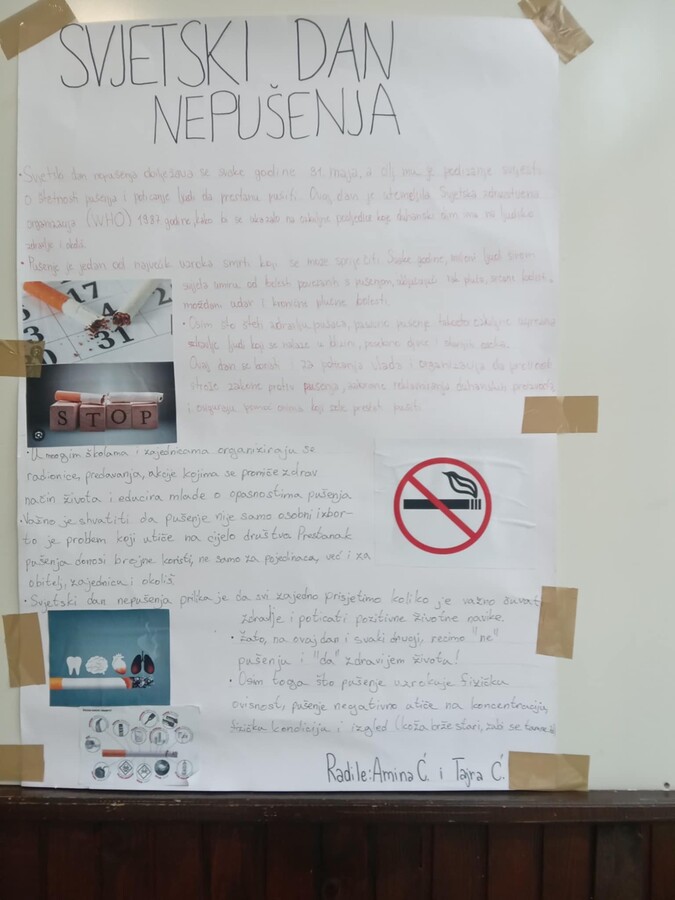 SVJETSKI DAN
NEPUŠENJA
• Svjetski dan nepušenja obilježava se svake godine 31. maja, a cilj mu je podizanje svijesti
o štetnosti pušenja i poticanje ljudi da prestanu pušiti. Ovaj dan je utemeljila Svjetska zdravstvena
organizacija (WHO) 1987 godine, kako bi se ukazalo na ozbiljne posljedice koje duhanski dim ima na ljudsko
zdravlje i
• Pušenje je jedan od najvećih uzroka smrti koji se može spriječiti. Svake godine, milioni ljudi širom
svijeta umiru od bolesti povezanih s pušenjem, uključujući rak pluća, srčane bolesti,
moždani udar i hronične plućne bolesti.
• Osim što šteti zdravlju pušača, pasivno pušenje također
zdravlje ljudi koji se nalaze u blizini, posebno djece i
Ovaj dan se koristi i za poticanje vlada i organizacija da
strože zakone protiv pušenja, reklamiranja duhanskih proizvoda
i pomoć onima koji žele prestati pušiti.
17
24
30
31
STOP
• U mnogim školama i zajednicama organiziraju se
radionice, predavanja, akcije kojima se promiče zdrav
način života i educira mlade o opasnostima pušenja
• Važno je shvatiti da pušenje nije samo osobni izbor-
to je problem koji utiče na cijelo društvo Prestanak
pušenja donosi brojne koristi, ne samo za pojedinaca, već i za
obitelj, zajednicu i okoliš.
• Svjetski dan nepušenja prilka je da svi zajedno prisjetimo koliko je važno čuvati
zdravlje i poticati pozitivne životne navike.
• Zato, na ovaj dan i svaki drugi, recimo "ne"
pušenju i "da" zdravijem životu!
• Osim toga što pušenje uzrokuje fizičku
ovisnost, pušenje negativno utiče na koncentraciju,
fizičku kondiciju i izgled (koža brže stari, zubi se
Radile: Amina Ć. i Tajra Ć.